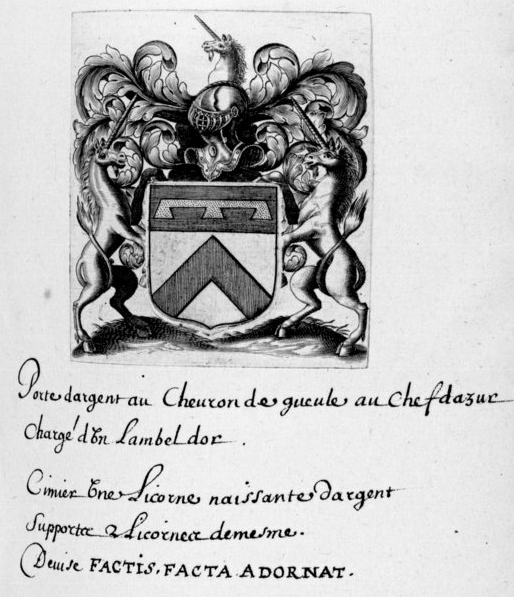 Porte dargent au Cheuron de gueule au Chef dazur
Chargé dVn Lambel dor.
Cimier Vne Licorne naissante dargent
Supportee 2 Licornes demesme.
Deuise FACTIS, FACTA ADORNAT.